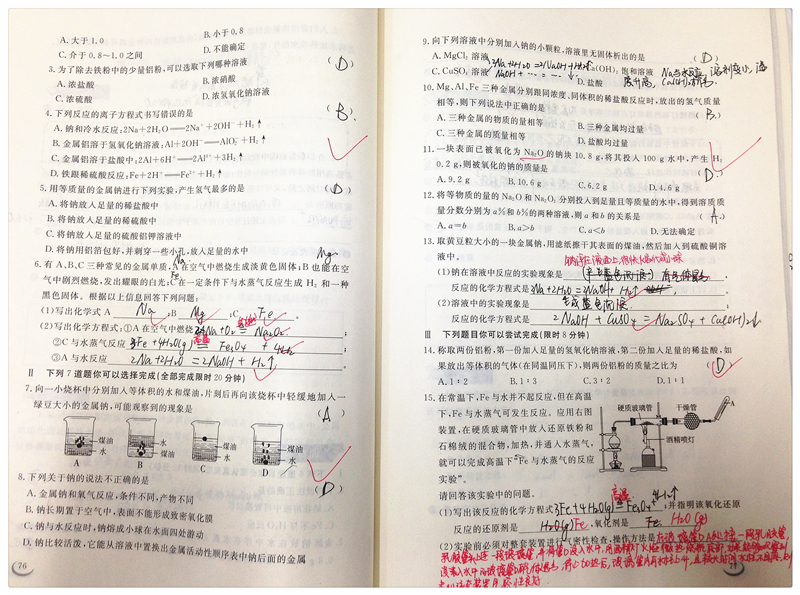 A. 大于 1.0
B. 小于 0.8
C. 介于 0.8～1.0 之间
D. 不能确定
3. 为了除去铁粉中的少量铝粉,可以选取下列哪种溶液 ( D )
A. 浓盐酸
B. 浓硝酸
C. 浓硫酸
D. 浓氢氧化钠溶液
4. 下列反应的离子方程式书写错误的是 ( B )
A. 钠和冷水反应:2Na+2H₂O══2Na⁺+2OH⁻+H₂↑
B. 金属铝溶于氢氧化钠溶液:Al+2OH⁻══AlO₂⁻+H₂↑
C. 金属铝溶于盐酸中:2Al+6H⁺══2Al³⁺+3H₂↑
D. 铁跟稀硫酸反应:Fe+2H⁺══Fe²⁺+H₂↑
5. 用等质量的金属钠进行下列实验,产生氢气最多的是 ( D )
A. 将钠放入足量的稀盐酸中
B. 将钠放入足量的稀硫酸中
C. 将钠放入足量的硫酸铝钾溶液中
D. 将钠用铝箔包好,并刺穿一些小孔,放入足量的水中
Na
Mg
6. 有 A、B、C 三种常见的金属单质,A 在空气中燃烧生成淡黄色固体;B 也能在空
气中剧烈燃烧,发出耀眼的白光;C 在一定条件下与水蒸气反应生成 H₂ 和一种
Fe
黑色固体。根据以上信息回答下列问题:
(1)写出化学式 A Na ,B Mg ,C Fe 。
(2)写出化学方程式:①A 在空气中燃烧 2Na+O₂ Na₂O₂ ;
②C 与水蒸气反应 3Fe+4H₂O(g) 高温 Fe₃O₄+4H₂ ;
③A 与水反应 2Na+2H₂O=2NaOH+H₂↑ 。
Ⅱ 下列 7 道题你可以选择完成(全部完成限时 20 分钟)
7. 向一小烧杯中分别加入等体积的水和煤油,片刻后再向该烧杯中轻缓地加入一
绿豆大小的金属钠,可能观察到的现象是 ( A )
煤油
水
水
煤油
煤油
水
煤油
水
A B C D
8. 下列关于钠的说法不正确的是 ( D )
A. 金属钠和氧气反应,条件不同,产物不同
B. 钠长期置于空气中,表面不能形成致密氧化膜
C. 钠与水反应时,钠熔成小球在水面四处游动
D. 钠比较活泼,它能从溶液中置换出金属活动性顺序表中钠后面的金属
76
9. 向下列溶液中分别加入钠的小颗粒,溶液里无固体析出的是 ( D )
A. MgCl₂ 溶液
2Na+2H₂O=2NaOH+H₂↑
Ca(OH)₂ 饱和溶液
Na与水反应
C. CuSO₄ 溶液
D. 盐酸
10. Mg、Al、Fe 三种金属分别跟同浓度、同体积的稀盐酸反应时,放出的氢气质量
相等,则下列说法中正确的是 ( B )
A. 三种金属的物质的量相等
B. 三种金属均过量
C. 三种金属的质量相等
D. 盐酸均过量
11. 一块表面已被氧化为 Na₂O 的钠块 10.8 g,将其投入 100 g 水中,产生 H₂
0.2 g,则被氧化的钠的质量是 ( D )
A. 9.2 g B. 10.6 g C. 6.2 g D. 4.6 g
12. 将等物质的量的 Na₂O 和 Na₂O₂ 分别投入到足量且等质量的水中,得到溶质质
量分数分别为 a% 和 b% 的两种溶液,则 a 和 b 的关系是 ( A )
A. a=b B. a>b C. a<b D. 无法确定
13. 取黄豆粒大小的一块金属钠,用滤纸擦干其表面的煤油,然后加入到硫酸铜溶
液中。
(1)钠在溶液中反应的实验现象是
反应的化学方程式是 2Na+2H₂O=2NaOH+H₂↑ 。
(2)溶液中的实验现象是 生成蓝色沉淀 ,
反应的化学方程式是 2NaOH+CuSO₄=Na₂SO₄+Cu(OH)₂↓
Ⅲ 下列题目你可以尝试完成(限时 8 分钟)
14. 称取两份铝粉,第一份加入足量的氢氧化钠溶液,第二份加入足量的稀盐酸,如
果放出等体积的气体(在同温同压下),则两份铝粉的质量之比为 ( D )
A. 1∶2 B. 1∶3 C. 3∶2 D. 1∶1
15. 在常温下,Fe 与水并不起反应,但在高温
下,Fe 与水蒸气可发生反应。应用右图
装置,在硬质玻璃管中放入还原铁粉和
石棉绒的混合物,加热,并通入水蒸气,
就可以完成高温下“Fe 与水蒸气的反应
实验”。
硬质玻璃管 干燥管
A
酒精喷灯
请回答该实验中的问题。
(1)写出该反应的化学方程式 3Fe+4H₂O(g) 高温 Fe₃O₄+4H₂↑ ;并指明该氧化还原
反应的还原剂是 H₂O(g) Fe ,氧化剂是 Fe H₂O(g)
(2)实验前必须对整套装置进行气密性检查,操作方法是